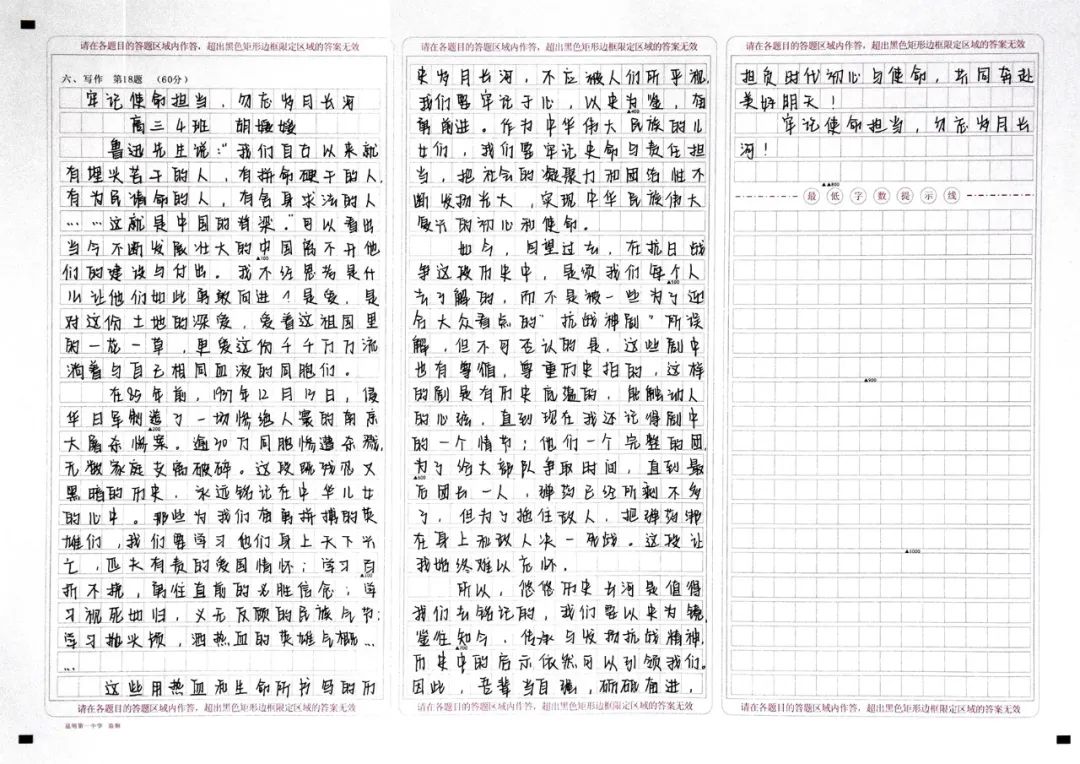 请在各题目的答题区域内作答，超出黑色矩形边框限定区域的答案无效
六、写作 第18题 （60分）
牢记使命担当，勿忘岁月长河
高三4班 胡媛媛
鲁迅先生说："我们自古以来就
有埋头苦干的人，有拼命硬干的人，
有为民请命的人，有舍身求法的人
……这就是中国的脊梁。"可以看出
当今不断发展壮大的中国离不开他
▲100
们的建设与付出。我不经思考是什
么让他们如此勇敢向进？是爱，是
对这份土地的深爱，爱着这祖国里
的一花一草，更爱这份千千万万流
淌着与自己相同血液的同胞们。
在85年前，1937年12月13日，侵
华日军制造了一场惨绝人寰的南京
▲200
大屠杀惨案。遍30万同胞惨遭杀戮，
无数家庭支离破碎。这段既残忍又
黑暗的历史，永远铭记在中华儿女
的心中。那些为我们奋勇拼搏的英
雄们，我们要学习他们身上天下兴
亡，匹夫有责的爱国情怀；学习百
▲300
折不挠，勇往直前的必胜信念；学
习视死如归，义无反顾的民族气节；
学习抛头颅，洒热血的英雄气概…
…
这些用热血和生命所书写的历
请在各题目的答题区域内作答，超出黑色矩形边框限定区域的答案无效
昆明第一中学 监制
请在各题目的答题区域内作答，超出黑色矩形边框限定区域的答案无效
史岁月长河，不应被人们所平视，
我们要牢记于心，以史为鉴，奋
▲400
勇前进。作为中华伟大民族的儿
女们，我们要牢记史命与责任担
当，把社会的凝聚力和团结性不
断发扬光大，实现中华民族伟大
复兴的初心和使命。
如今，回望过去，在抗日战
争这段历史中，是须我们每个人
▲500
去了解的，而不是被一些为了迎
合大众看点的"抗战神剧"所误
解，但不可否认的是，这些剧中
也有尊循，尊重历史拍的，这样
的剧是有历史底蕴的，能触动人
的心弦，直到现在我还记得剧中
的一个情节；他们一个完整的团，
为了给大部队争取时间，直到最
▲600
后团长一人，弹药已经所剩不多
了，但为了拖住敌人，把弹药绑
在身上和敌人决一死战。这段让
我始终难以忘怀。
所以，悠悠历史长河是值得
我们去铭记的，我们要以史为镜，
鉴往知今，传承与发扬抗战精神，
▲700
历史中的启示依然可以引领我们。
因此，吾辈当自强，砥砺奋进，
请在各题目的答题区域内作答，超出黑色矩形边框限定区域的答案无效
请在各题目的答题区域内作答，超出黑色矩形边框限定区域的答案无效
担负时代初心与使命，共同奔赴
美好明天！
牢记使命担当，勿忘岁月长
河！
▲▲800
最低字数提示线
▲900
▲1000
请在各题目的答题区域内作答，超出黑色矩形边框限定区域的答案无效